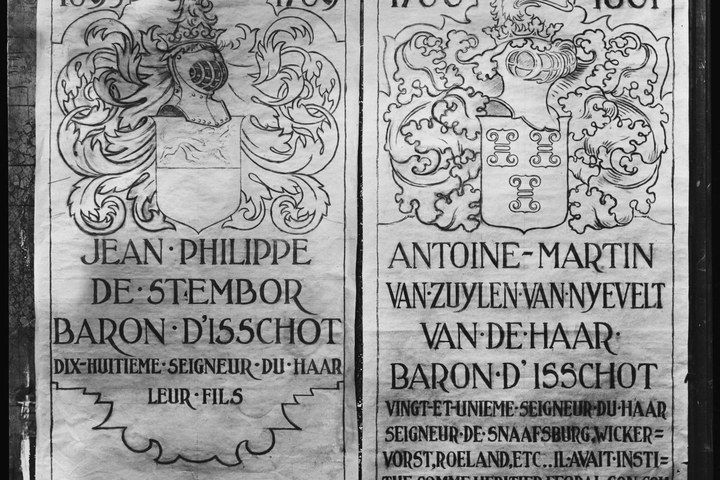 JEAN·PHILIPPE
DE·STEMBOR
BARON·D'ISSCHOT
DIX-HUITIEME·SEIGNEUR·DU·HAAR
LEUR·FILS
ANTOINE-MARTIN
VAN·ZUYLEN·VAN·NYEVELT
VAN·DE·HAAR·
BARON·D'ISSCHOT
VINGT-ET-UNIEME·SEIGNEUR·DU·HAAR
SEIGNEUR·DE·SNAAFSBURG,WICKER=
VORST,ROELAND,ETC..IL·AVAIT·INSTI=